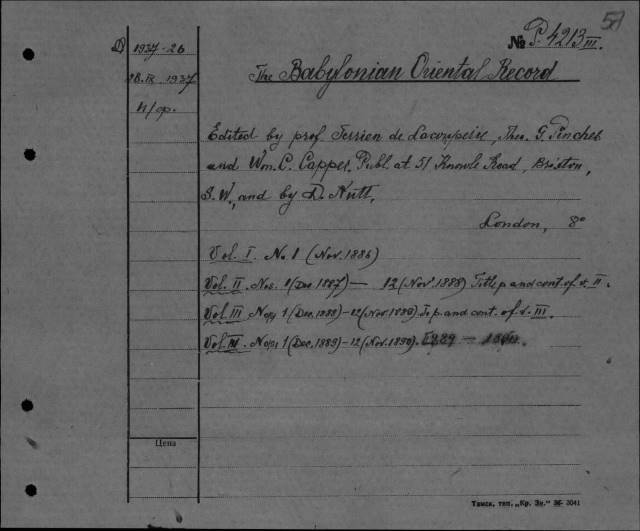 57
№ P. 4213 III.
D) 1937-26
28.IX.1937
н/ор.
The Babylonian Oriental Record
Edited by prof Terrien de Lacouperie, Theo. G. Pinches
and Wm. C. Capper, Publ. at 51 Knowle Road, Brixton,
S.W., and by D. Nutt,
London, 8°
Vol. I. No 1 (Nov. 1886)
Vol. II. Nos. 1 (Dec 1887) — 12 (Nov. 1888) Title p and cont. of v. II.
Vol. III Nos 1 (Dec. 1888) - 12 (Nov 1889) T. p. and cont. of v. III.
Vol. IV. Nos 1 (Dec. 1889) - 12 (Nov. 1890). 1889 —
Цена
Тамск. тип. „Кр. Зн.“ 3041